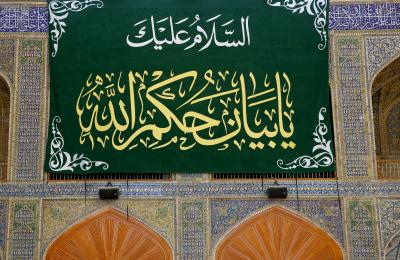 السَّلَامُ عَلَيْكَ
يَا بَيَانَ حُكْمِ اللهِ